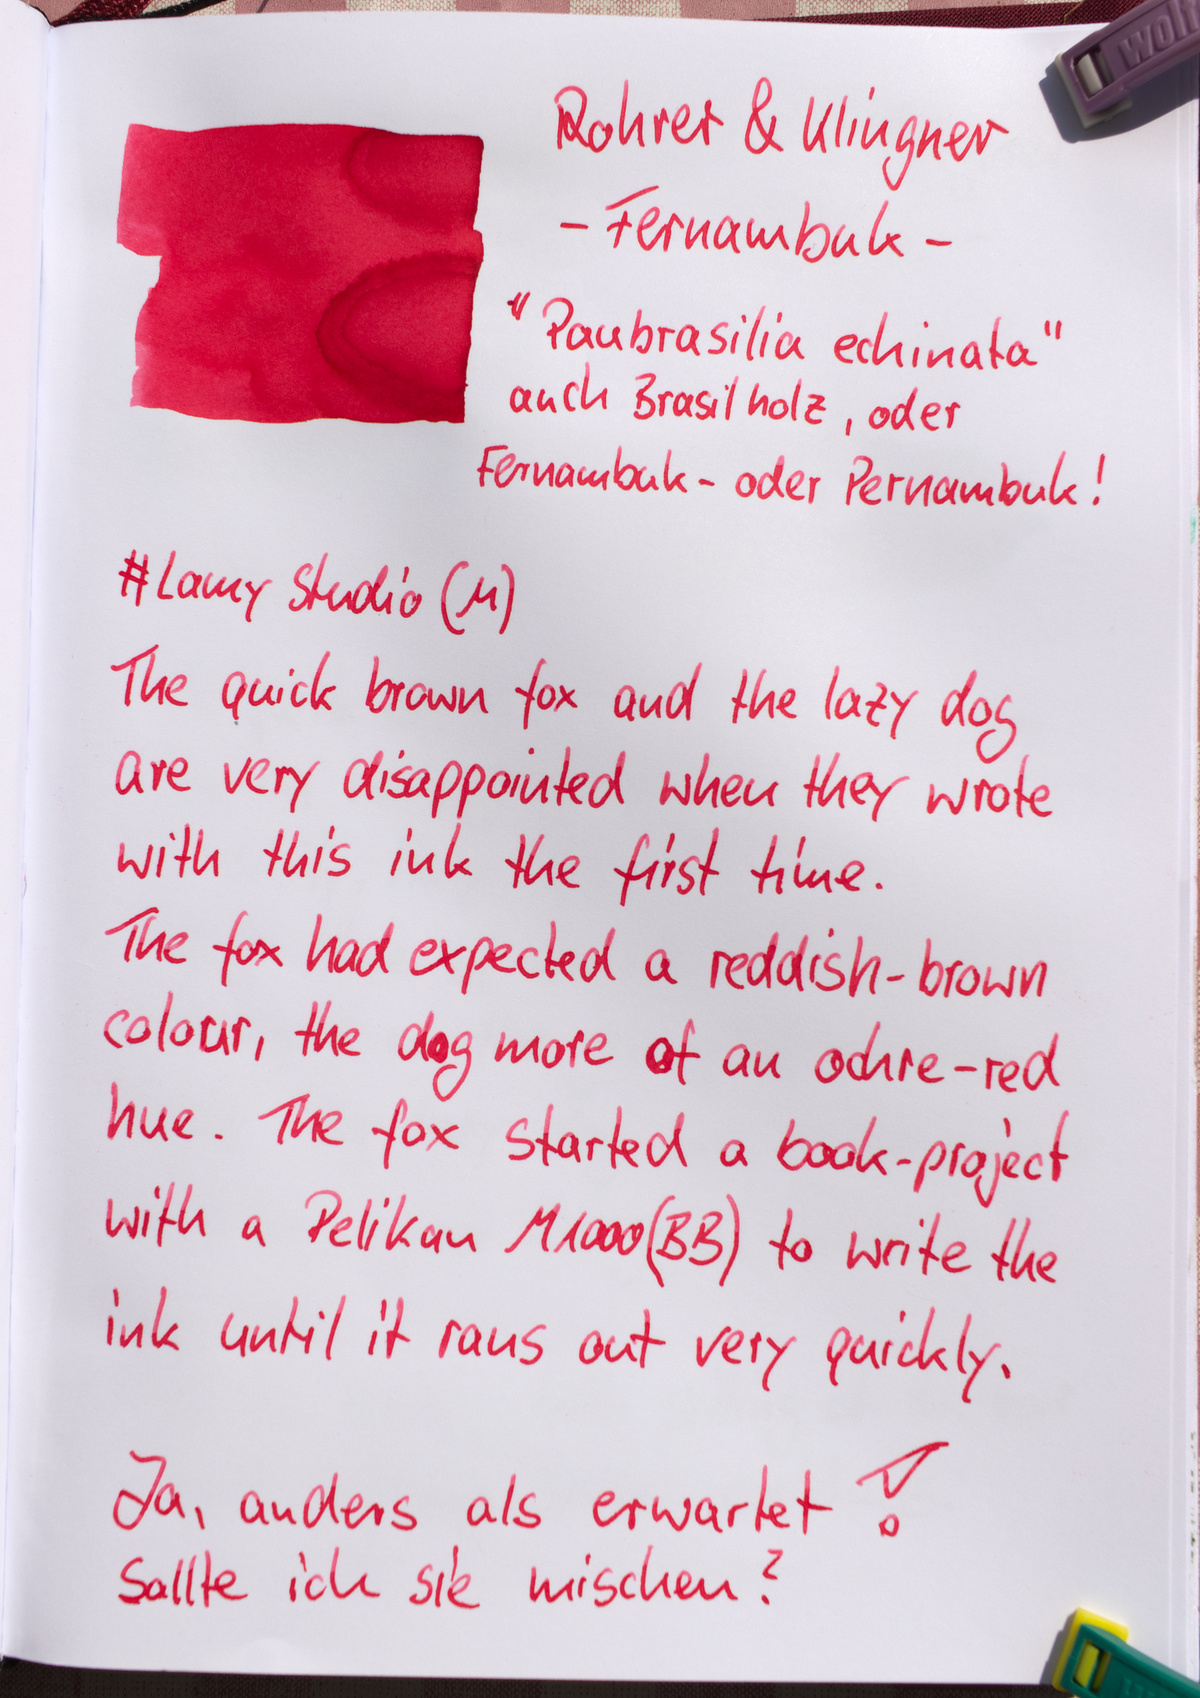 Rohrer & Klingner
- Fernambuk -
"Paubrasilia echinata"
auch Brasilholz, oder
Fernambuk- oder Pernambuk!
#Lamy Studio (M)
The quick brown fox and the lazy dog
are very disappointed when they wrote
with this ink the first time.
The fox had expected a reddish-brown
colour, the dog more of an ochre-red
hue. The fox started a book-project
with a Pelikan M1000(BB) to write the
ink until it rans out very quickly.
Ja, anders als erwartet!
Sollte ich sie mischen?
wolf